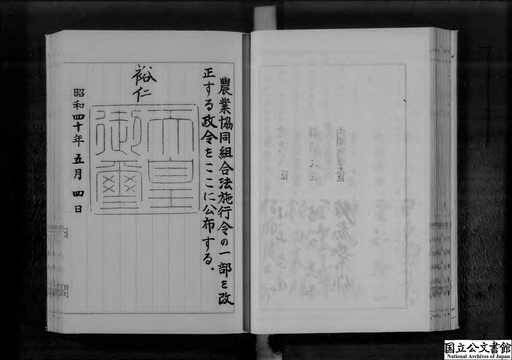 農業協同組合法施行令の一部を改
正する政令をここに公布する。
裕仁
天皇
御璽
昭和四十年五月四日
国立公文書館
National Archives of Japan